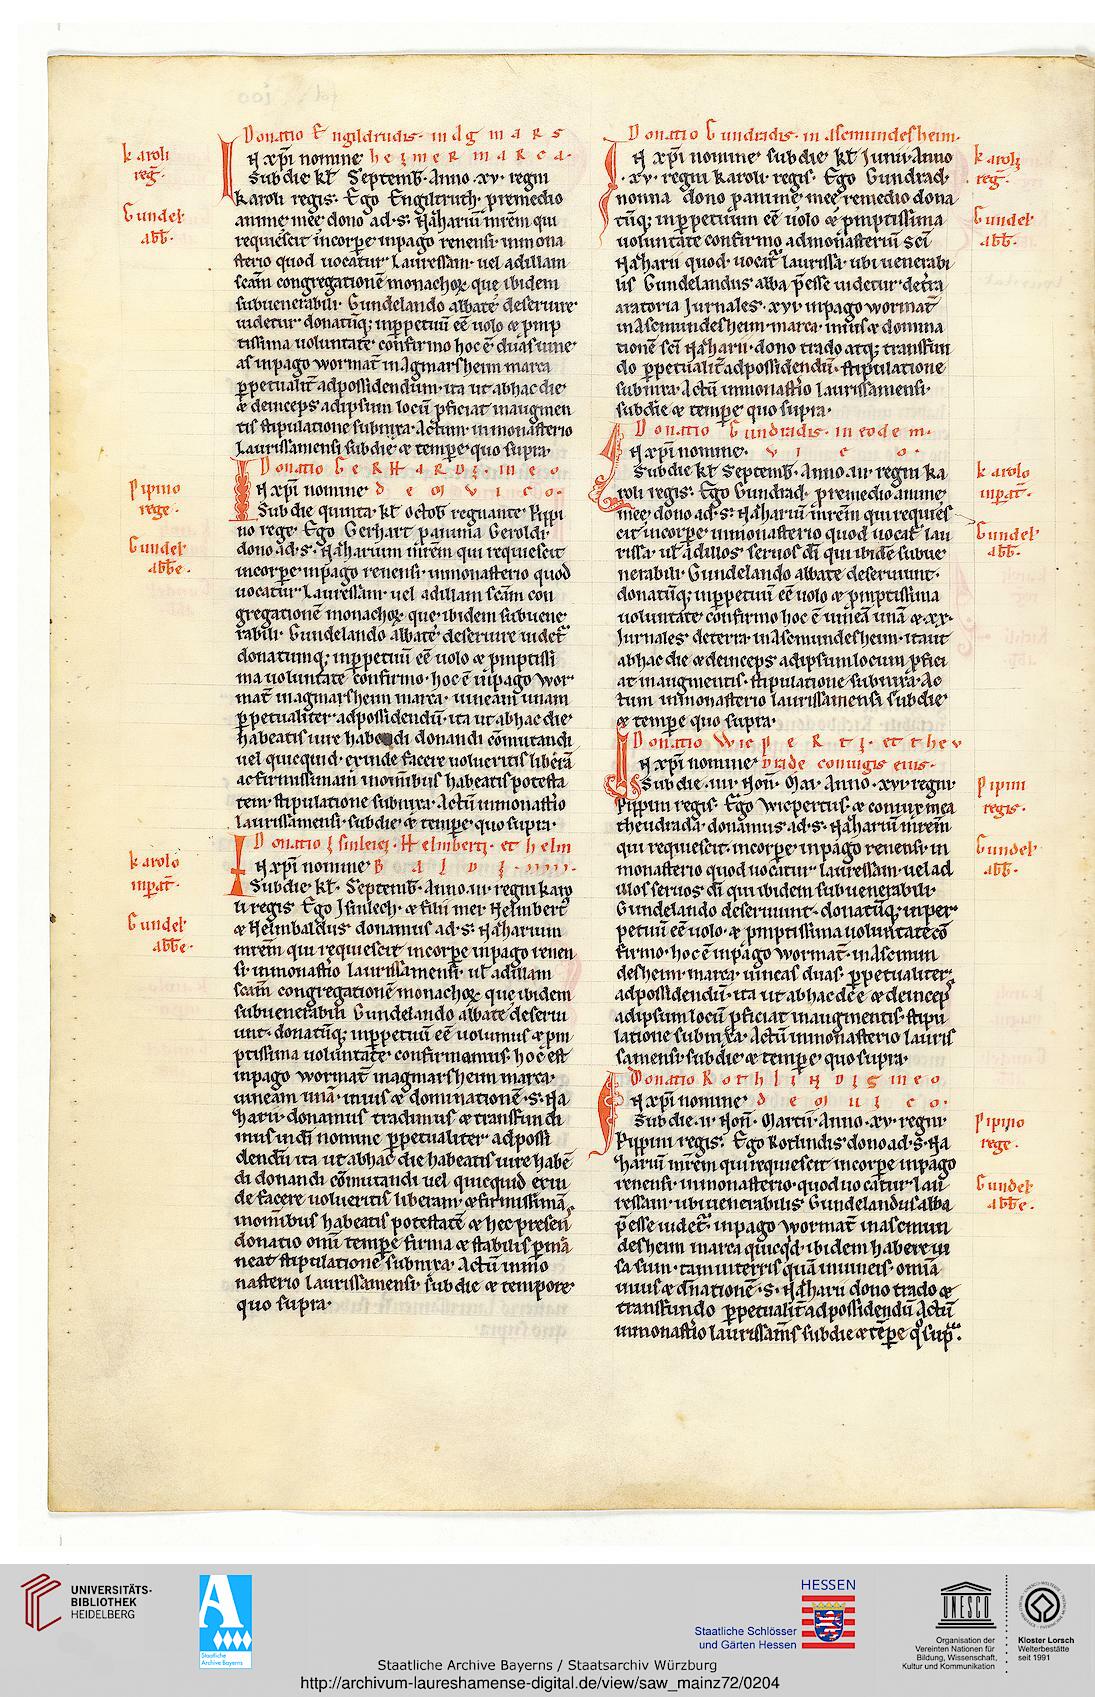 Donatio Engildrudis. in Agmars
karoli
reg̅.
Gundel̅
abb̅.
IN xp̅i nomine heimer marca.
Sub die kl̅ Septemb̅. Anno. xv. regni
karoli regis. Ego Engiltruth. p remedio
anime mee dono ad. s. Nazariu̅ m̅rem qui
requiescit in corpe in pago renensi. in mona
sterio quod uocatur Lauressam. uel ad illam
sc̅am congregatione̅ monachoꝝ que ibidem
sub uenerabili Gundelando abbate deseruire
uidetur donatu̅q; in ppetuu̅ ee̅ uolo & pmp
tissima uoluntate confirmo hoc e̅ duas uine
as in pago wormat̅ in Agmarsheim marca
ppetualit̅ ad possidendum. ita ut ab hac die
& deinceps ad ipsum locu̅ pficiat in augmen
tis stipulatione subnixa. Actum in monasterio
Laurissamensi sub die & tempe quo supra.
Donatio GerHardi. in eo
dem uico.
Pipino
rege.
Gundel̅
abb̅e.
IN xp̅i nomine
Sub die quinta. kl̅ octob̅ regnante Pippi
no rege. Ego Gerhart p anima Geroldi
dono ad. s. Nazarium m̅rem qui requiescit
in corpe in pago renensi. in monasterio quod
uocatur Lauressam. uel ad illam sc̅am con
gregatione̅ monachoꝝ que ibidem sub uene
rabili Gundelando abbate deseruire uidet̅
donatumq; in ppetuu̅ ee̅ uolo & pmptissi
ma uoluntate confirmo. hoc e̅ in pago wor
mat̅ in agmarsheim marca. uineam unam
ppetualiter ad possidendu̅. ita ut ab hac die
habeatis iure habendi donandi co̅mutandi
uel quicquid exinde facere uolueritis libera̅
ac firmissimam in om̅ibus habeatis potesta
tem stipulatione subnixa. Actu̅ in monast̅io
laurissamensi sub die & tempe quo supra.
Donatio Isinleici. Helmberti. et Helm
baldi.
karolo
inpat̅.
Gundel̅
abb̅e.
IN xp̅i nomine
Sub die kl̅ Septemb̅. Anno. iii. regni karo
li regis. Ego Isinlech. & filii mei Helmbert̅
& Helmbaldus donamus ad. s. Nazarium
m̅rem qui requiescit in corpe in pago renen
si. in monast̅io laurissamensi. ul̅ ad illam
sc̅am congregatione̅ monachoꝝ que ibidem
sub uenerabili Gundelando abbate deseru
unt. donatu̅q; in ppetuu̅ ee̅ uolumus & pm
ptissima uoluntate confirmamus. hoc est
in pago wormat̅ in agmarsheim marca.
uineam una̅. in ius & dominatione̅. s. Na
zarii donamus tradimus & transfundi
mus in di̅ nomine ppetualiter ad possi
dendu̅ ita ut ab hac die habeatis iure habe̅
di donandi co̅mutandi uel quicquid exin
de facere uolueritis liberam & firmissima̅
in om̅ibus habeatis potestate̅ & hec presen̅
donatio omi̅ tempe firma & stabilis pma̅
neat stipulatione subnixa. Actu̅ in mo
nasterio laurissamensi. sub die & tempore
quo supra.
Donatio Gundradis. in Asmundesheim.
karoli
reg̅.
Gundel̅
abb̅.
IN xp̅i nomine sub die kl̅ Junii. Anno
. xv. regni karoli regis. Ego Gundrad.
nonna dono p anime mee remedio dona
tu̅q; in ppetuum ee̅ uolo & pmptissima
uoluntate confirmo ad monasteriu̅ sc̅i
Nazarii quod uocat̅ laurissa. ubi uenerabi
lis Gundelandus abba p̅esse uidetur. de t̅ra
aratoria Jurnales. xvi in pago wormat̅
in Asmundesheim. marca. in ius & domina
tione̅ sc̅i Nazarii. dono trado atq; transfun
do ppetualit̅ ad possidendu̅. stipulatione
subnixa. Actu̅ in monast̅io laurissamensi.
sub die & tempe quo supra.
Donatio Gundradis. in eodem.
uico.
karolo
inpat̅.
Gundel̅
abb̅.
IN xp̅i nomine
Sub die kl̅ Septemb̅. Anno. iii. regni ka
roli regis. Ego Gundrad. p remedio anime
mee dono ad. s. Nazariu̅ m̅rem qui requies
cit in corpe. in monasterio quod uocat̅ lau
rissa. ul̅ ad illos seruos di̅ qui ibide̅ sub ue
nerabili Gundelando abbate deseruiunt.
donatu̅q; in ppetuu̅ ee̅ uolo & pmptissima
uoluntate confirmo hoc e̅ uinea̅ una̅ & xx.
Jurnales de terra in Asmundesheim. ita ut
ab hac die & deinceps ad ipsum locum pfici
at in augmentis. stipulatione subnixa. Ac
tum in monasterio laurissamensi sub die
& tempe quo supra.
Donatio Wicperti. et theu
drade coniugis eius.
Pipini
regis.
Gundel̅
abb̅.
IN xp̅i nomine
Sub die. iiii. Non̅. Mai. Anno. xvi. regni
Pippini regis. Ego Wicpertus. & coniux mea
theudrada. donamus ad. s. Nazariu̅ m̅rem
qui requiescit. in corpe. in pago renensi. in
monasterio quod uocatur lauressam. uel ad
illos seruos di̅ qui ibidem sub uenerabili.
Gundelando deseruiunt. donatu̅q; in per
petuu̅ ee̅ uolo. & pmptissima uoluntate co̅
firmo. hoc e̅ in pago wormat̅. in Asmun
desheim. marca. uineas duas. ppetualiter
ad possidendu̅. ita ut ab hac die & deincep̅
ad ipsum locu̅ pficiat in augmentis. stipu
latione subnixa. Actu̅ in monasterio lauris
samensi. sub die & tempe quo supra.
Donatio Rothlindis in eo
dem uico.
Pipino
rege.
Gundel̅
abb̅e.
IN xp̅i nomine
Sub die. ii. Non̅. Martii. Anno. xv. regni.
Pippini regis. Ego Rotlindis dono ad. s. Na
zariu̅ m̅rem qui requiescit in corpe in pago
renensi. in monasterio. quod uocatur lau
ressam. ubi uenerabilis Gundelandus abba
p̅esse uidet̅. in pago wormat̅ in asmun
desheim marca quicq̅d. ibidem habere ui
sa sum. tam in terris qua̅ in uineis. omia̅
in ius & dn̅ationē. s. Nazarii dono trado &
transfundo ppetualit̅ ad possidendu̅. Actu̅
in monast̅io laurissam̅s sub die & te̅pe q̊ sup̅.
UNIVERSITÄTS-
BIBLIOTHEK
HEIDELBERG
A
Staatliche
Archive Bayerns
HESSEN
Staatliche Schlösser
und Gärten Hessen
UNESCO
Organisation der
Vereinten Nationen für
Bildung, Wissenschaft,
Kultur und Kommunikation
Kloster Lorsch
Welterbestätte
seit 1991
Staatliche Archive Bayerns / Staatsarchiv Würzburg
http://archivum-laureshamense-digital.de/view/saw_mainz72/0204